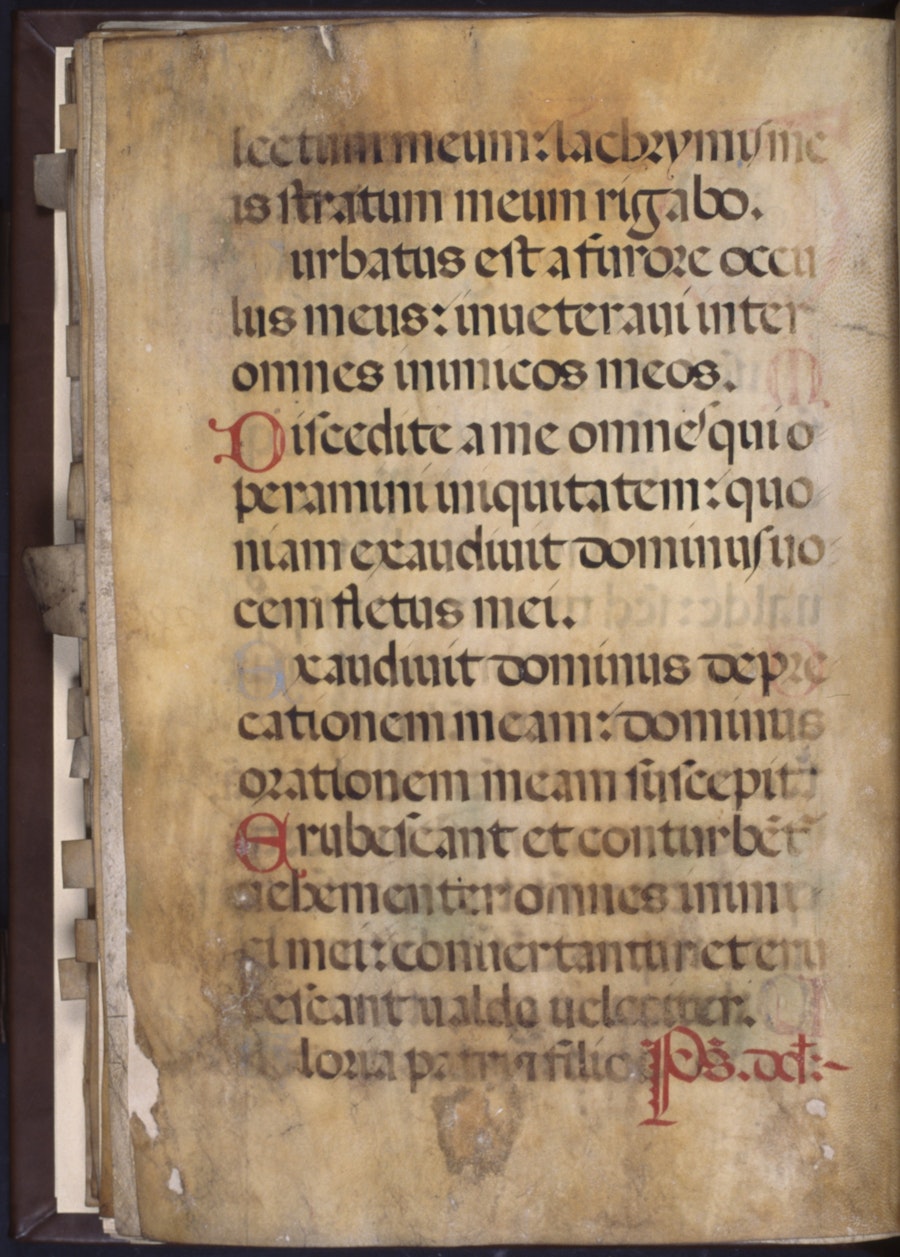 lectum meum: lachrymis me
is stratum meum rigabo.
urbatus est a furore occu
lus meus: inueteraui inter
omnes inimicos meos.
Discedite a me omnes qui o
peramini iniquitatem: quo
niam exaudiuit dominus uo
cem fletus mei.
Exaudiuit dominus depre
cationem meam: dominus
orationem meam suscepit
Erubescant et conturbēt
uehementer omnes inimi
ci mei: conuertantur et eru
bescant ualde uelociter.
loria patri filio Ps. dd: